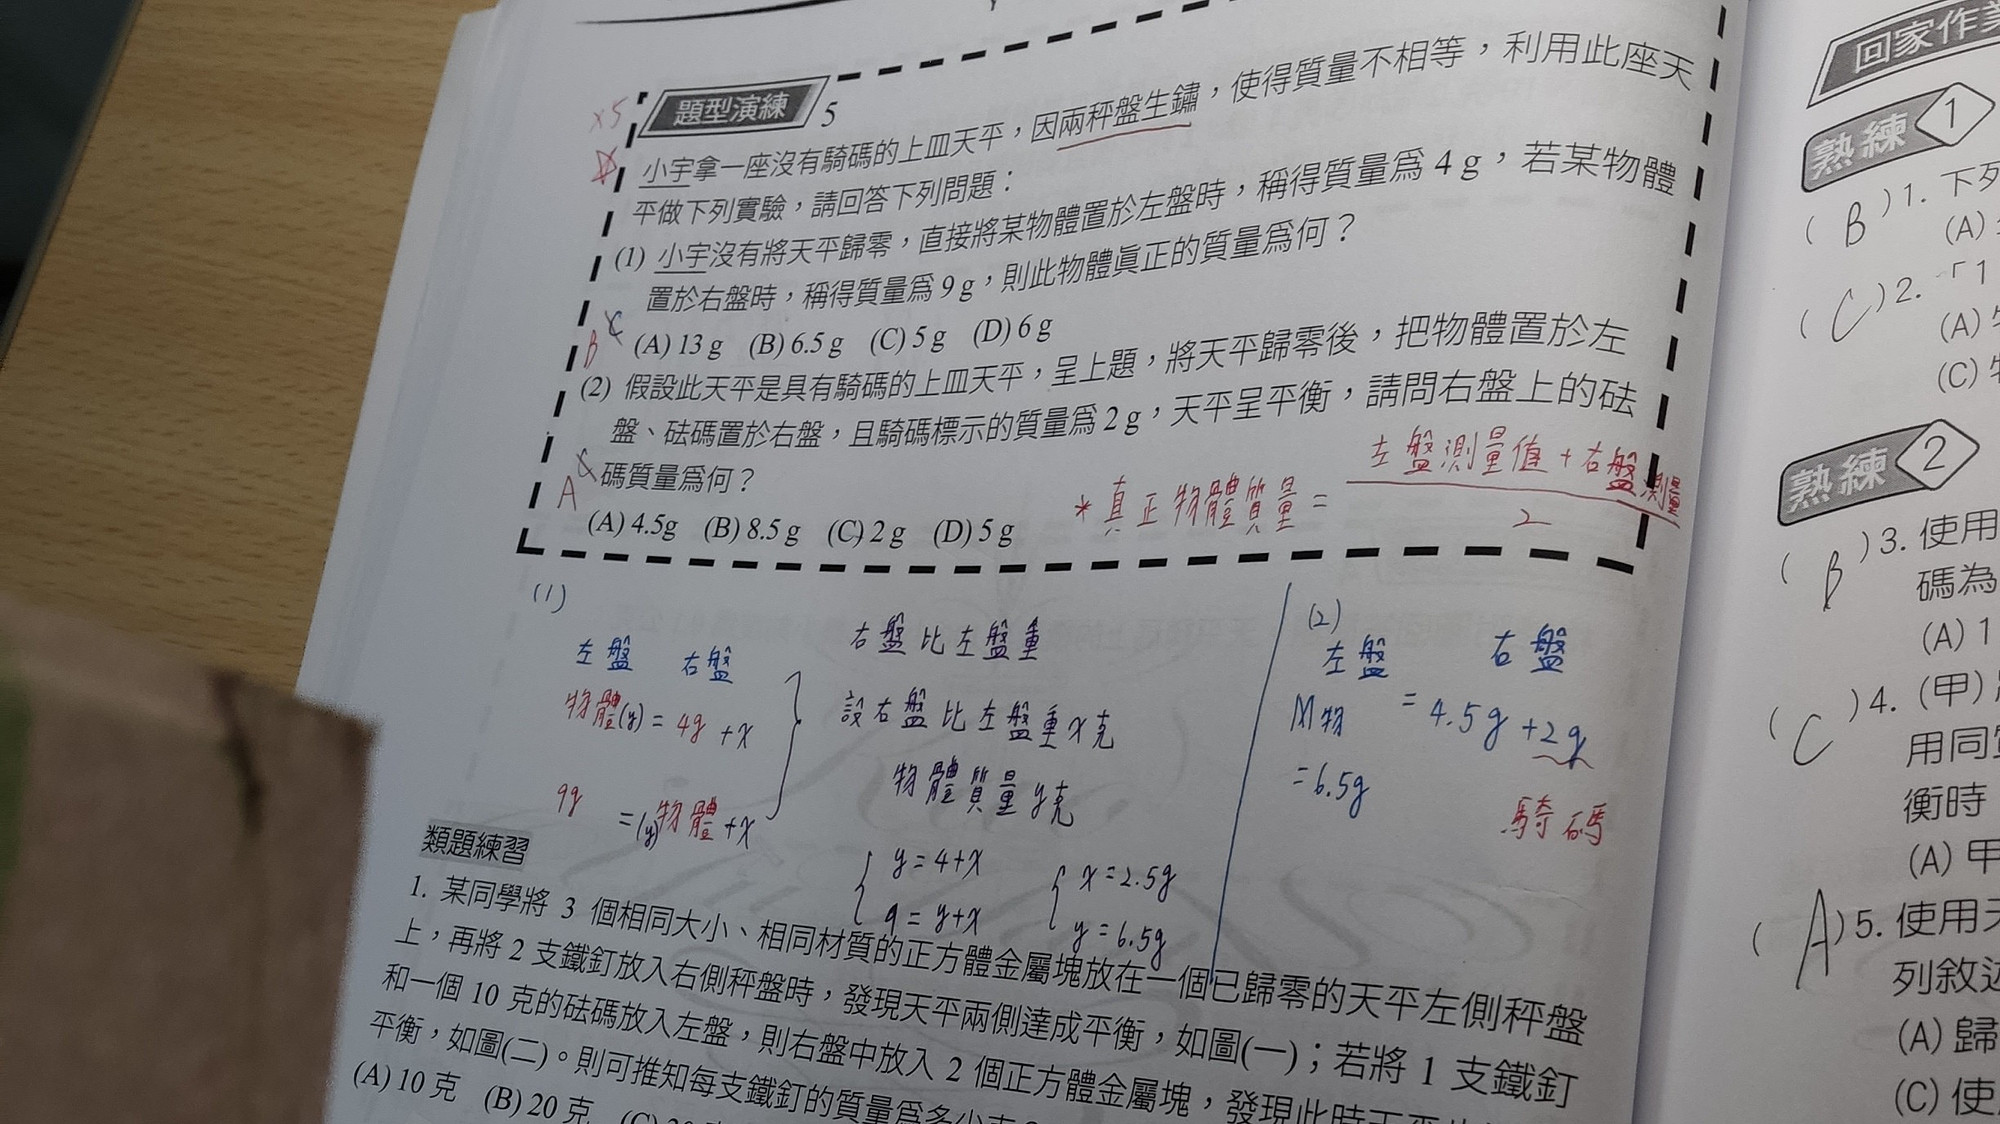 題型演練 5
×5
小宇拿一座沒有騎碼的上皿天平，因兩秤盤生鏽，使得質量不相等，利用此座天
平做下列實驗，請回答下列問題：
(1) 小宇沒有將天平歸零，直接將某物體置於左盤時，稱得質量為 4 g，若某物體
置於右盤時，稱得質量為 9 g，則此物體真正的質量為何？
C
B
(A) 13 g (B) 6.5 g (C) 5 g (D) 6 g
(2) 假設此天平是具有騎碼的上皿天平，呈上題，將天平歸零後，把物體置於左
盤、砝碼置於右盤，且騎碼標示的質量為 2 g，天平呈平衡，請問右盤上的砝
碼質量為何？
A
(A) 4.5g (B) 8.5 g (C) 2 g (D) 5 g
*真正物體質量 = 左盤測量值+右盤測量 / 2
(1)
左盤 右盤
物體(y) = 4g + x
9g = (y)物體 + x
右盤比左盤重
設右盤比左盤重x克
物體質量y克
y = 4+x
9 = y+x
x = 2.5g
y = 6.5g
(2)
左盤 右盤
M物 = 4.5g + 2g
= 6.5g
騎碼
類題練習
1. 某同學將 3 個相同大小、相同材質的正方體金屬塊放在一個已歸零的天平左側秤盤
上，再將 2 支鐵釘放入右側秤盤時，發現天平兩側達成平衡，如圖(一)；若將 1 支鐵釘
和一個 10 克的砝碼放入左盤，則右盤中放入 2 個正方體金屬塊，發現此時天平
平衡，如圖(二)。則可推知每支鐵釘的質量為多少克
(A) 10 克 (B) 20 克 (C)
回家作業
熟練 1
( B ) 1. 下列
(A)
( C ) 2. 「1
(A)
(C)
熟練 2
( B ) 3. 使用
碼為
(A) 1
( C ) 4. (甲)
用同
衡時
(A) 甲
( A ) 5. 使用天
列敘述
(A) 歸
(C) 使